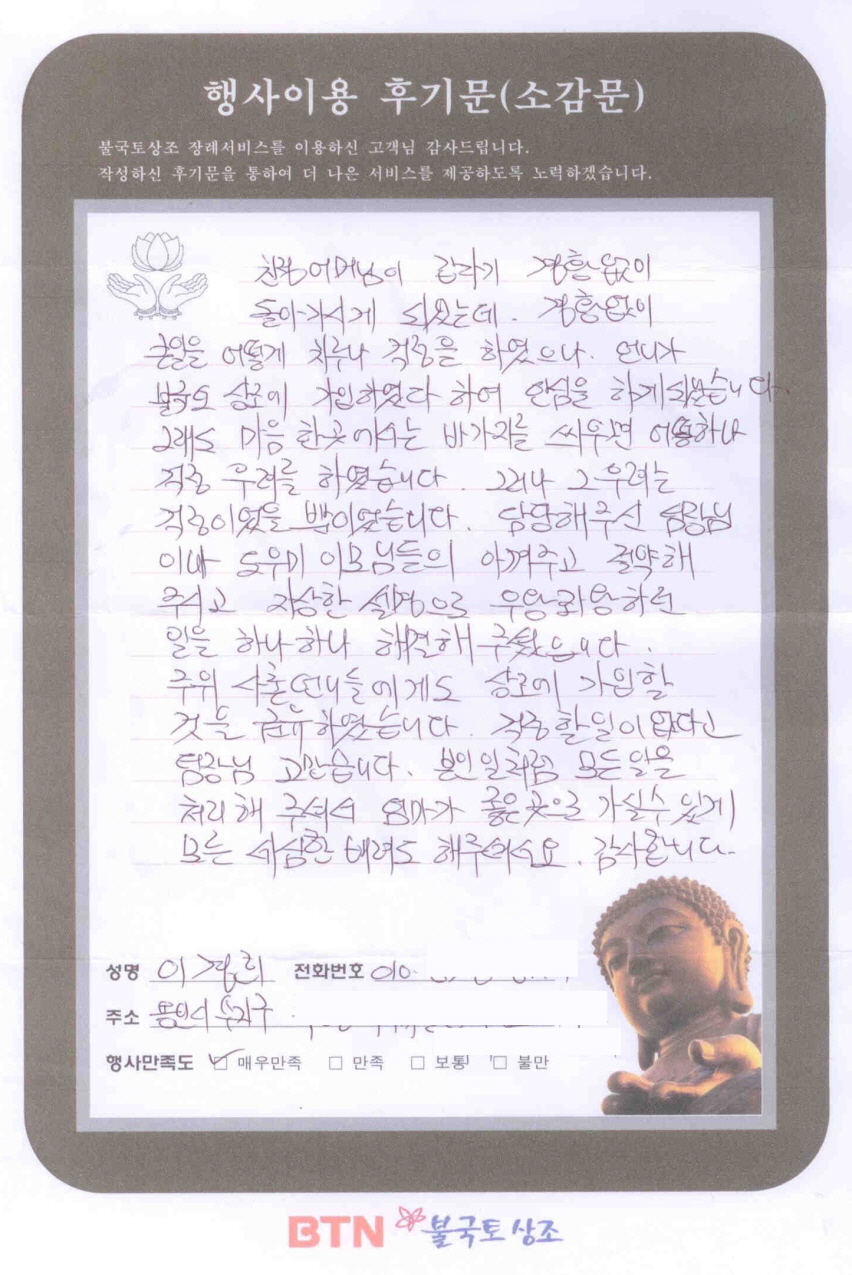 행사이용 후기문(소감문)
불국토상조 장례서비스를 이용하신 고객님 감사드립니다.
작성하신 후기문을 통하여 더 나은 서비스를 제공하도록 노력하겠습니다.
친정어머님이 갑자기 경황없이
돌아가시게 되었는데. 경황없이
큰일을 어떻게 치루나 걱정을 하였으나. 언니가
불국토 상조에 가입하였다 하여 안심을 하게되었습니다.
그래도 마음 한곳에서는 바가지를 씌우면 어떻하나
걱정 우려를 하였습니다. 그러나 그우려는
걱정이였을 뿐이였습니다. 담당해주신 팀장님
이나 도우미 이모님들의 아껴주고 절약해
주시고 자상한 설명으로 우왕좌왕하던
일을 하나하나 해결해 주셨습니다.
주위 사촌언니들에게도 상조에 가입할
것을 권유하였습니다. 걱정할일이 없다신
팀장님 고맙습니다. 본인일처럼 모든일을
처리해 주셔서 엄마가 좋은곳으로 가실수있게
모든 세심한 배려도 해주셔서요. 감사합니다.
성명 이 희 전화번호 010.
주소 용인시 수지구
행사만족도 ☑ 매우만족 □ 만족 □ 보통 □ 불만
BTN 불국토상조